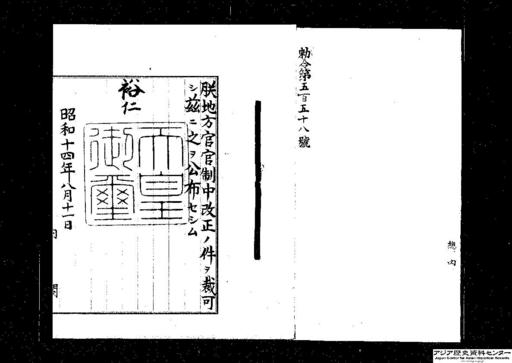 勅令第五百五十八號
總 內
朕地方官官制中改正ノ件ヲ裁可
シ茲ニ之ヲ公布セシム
裕仁
天皇御璽
昭和十四年八月十一日
內 閣
アジア歴史資料センター
Japan Center for Asian Historical Records